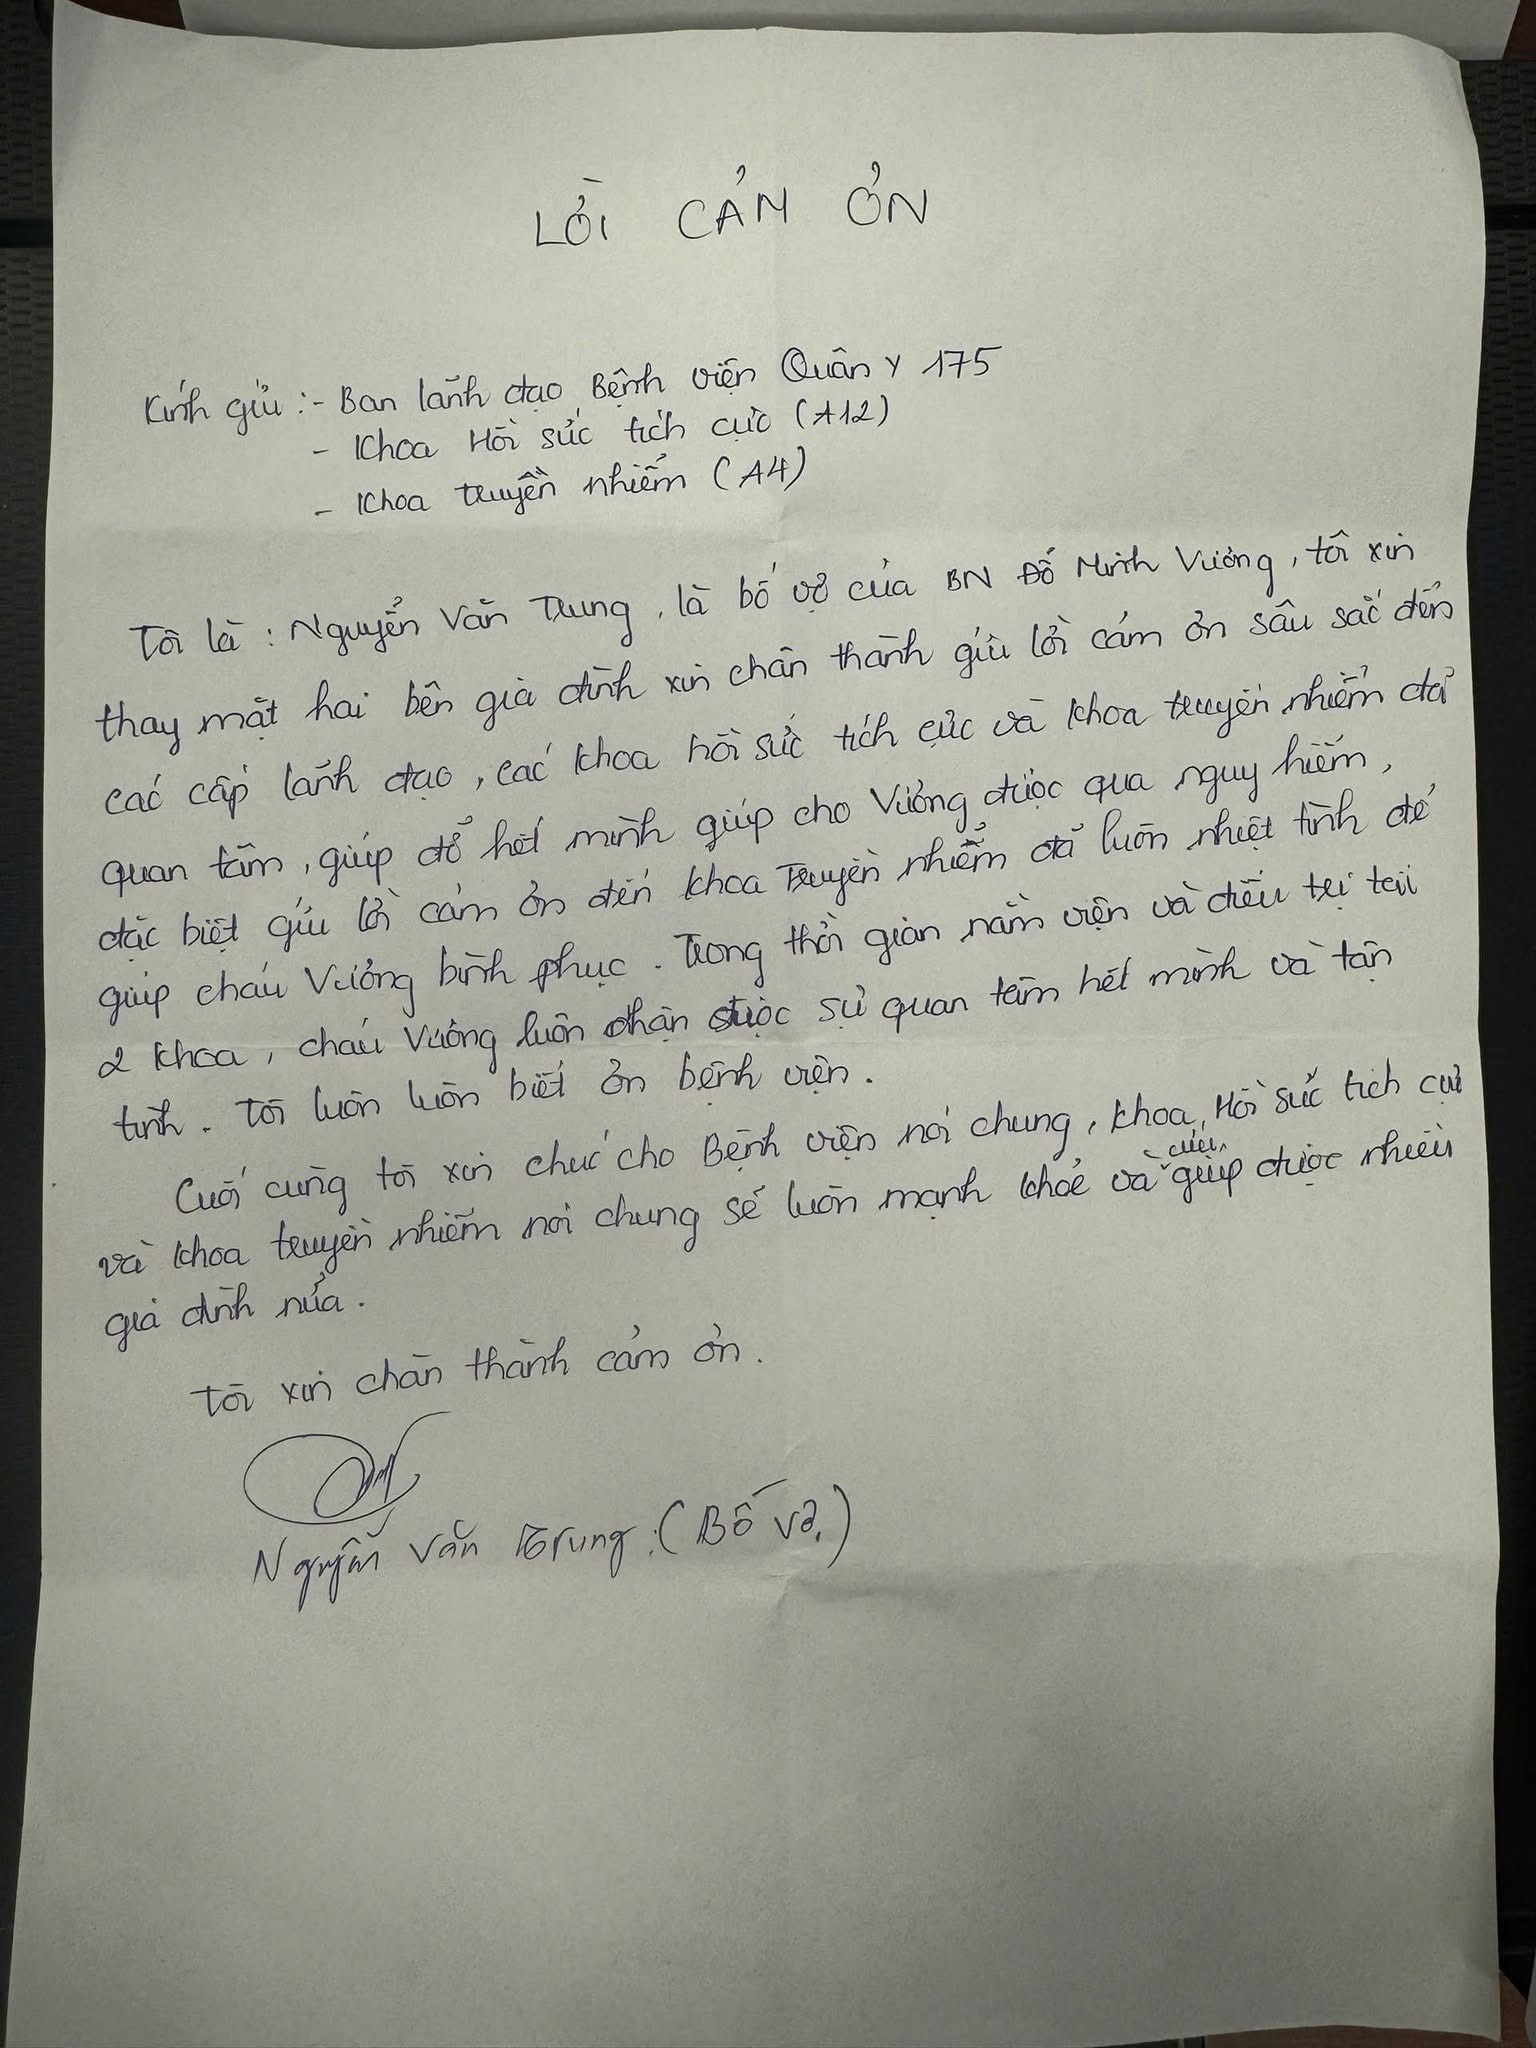 LỜI CẢM ƠN
Kính gửi: - Ban lãnh đạo Bệnh viện Quân y 175
- Khoa Hồi sức tích cực (A12)
- Khoa truyền nhiễm (A4)
Tôi là: Nguyễn Văn Trung, là bố vợ của BN Đỗ Minh Vương, tôi xin
thay mặt hai bên gia đình xin chân thành gửi lời cám ơn sâu sắc đến
các cấp lãnh đạo, các khoa hồi sức tích cực và khoa truyền nhiễm đã
quan tâm, giúp đỡ hết mình giúp cho Vương được qua nguy hiểm,
đặc biệt gửi lời cám ơn đến khoa Truyền nhiễm đã luôn nhiệt tình để
giúp cháu Vương bình phục. Trong thời gian nằm viện và điều trị tại
2 khoa, cháu Vương luôn nhận được sự quan tâm hết mình và tận
tình. Tôi luôn luôn biết ơn bệnh viện.
Cuối cùng tôi xin chúc cho Bệnh viện nói chung, khoa Hồi sức tích cực
và khoa truyền nhiễm nói chung sẽ luôn mạnh khỏe và cứu giúp được nhiều
gia đình nữa.
Tôi xin chân thành cảm ơn.
Nguyễn Văn Trung: (Bố vợ)